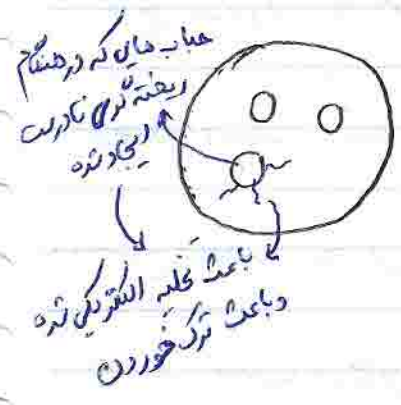 حباب هایی که در هنگام
ریخته گری نادرست
ایجاد شده
باعث تخلیه الکتریکی شده
و باعث ترک خوردن